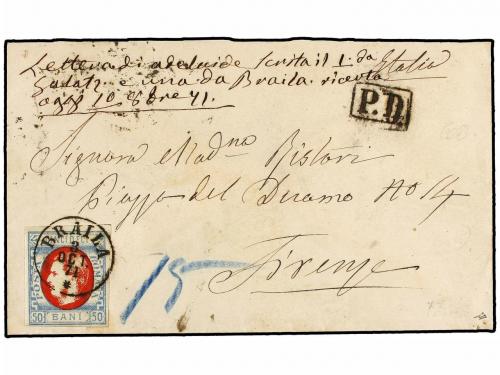 Lettera di Adelaide scritta il 1. da
Galatz e una da Braila. ricevta
oggi 10 8bre 71.
Italia
P.D.
Signora Madna Ristori
Piazza del Duomo No 14
Firenze
15
BRAILA
3
OCT
71
*
POSTA
50 BANI 50